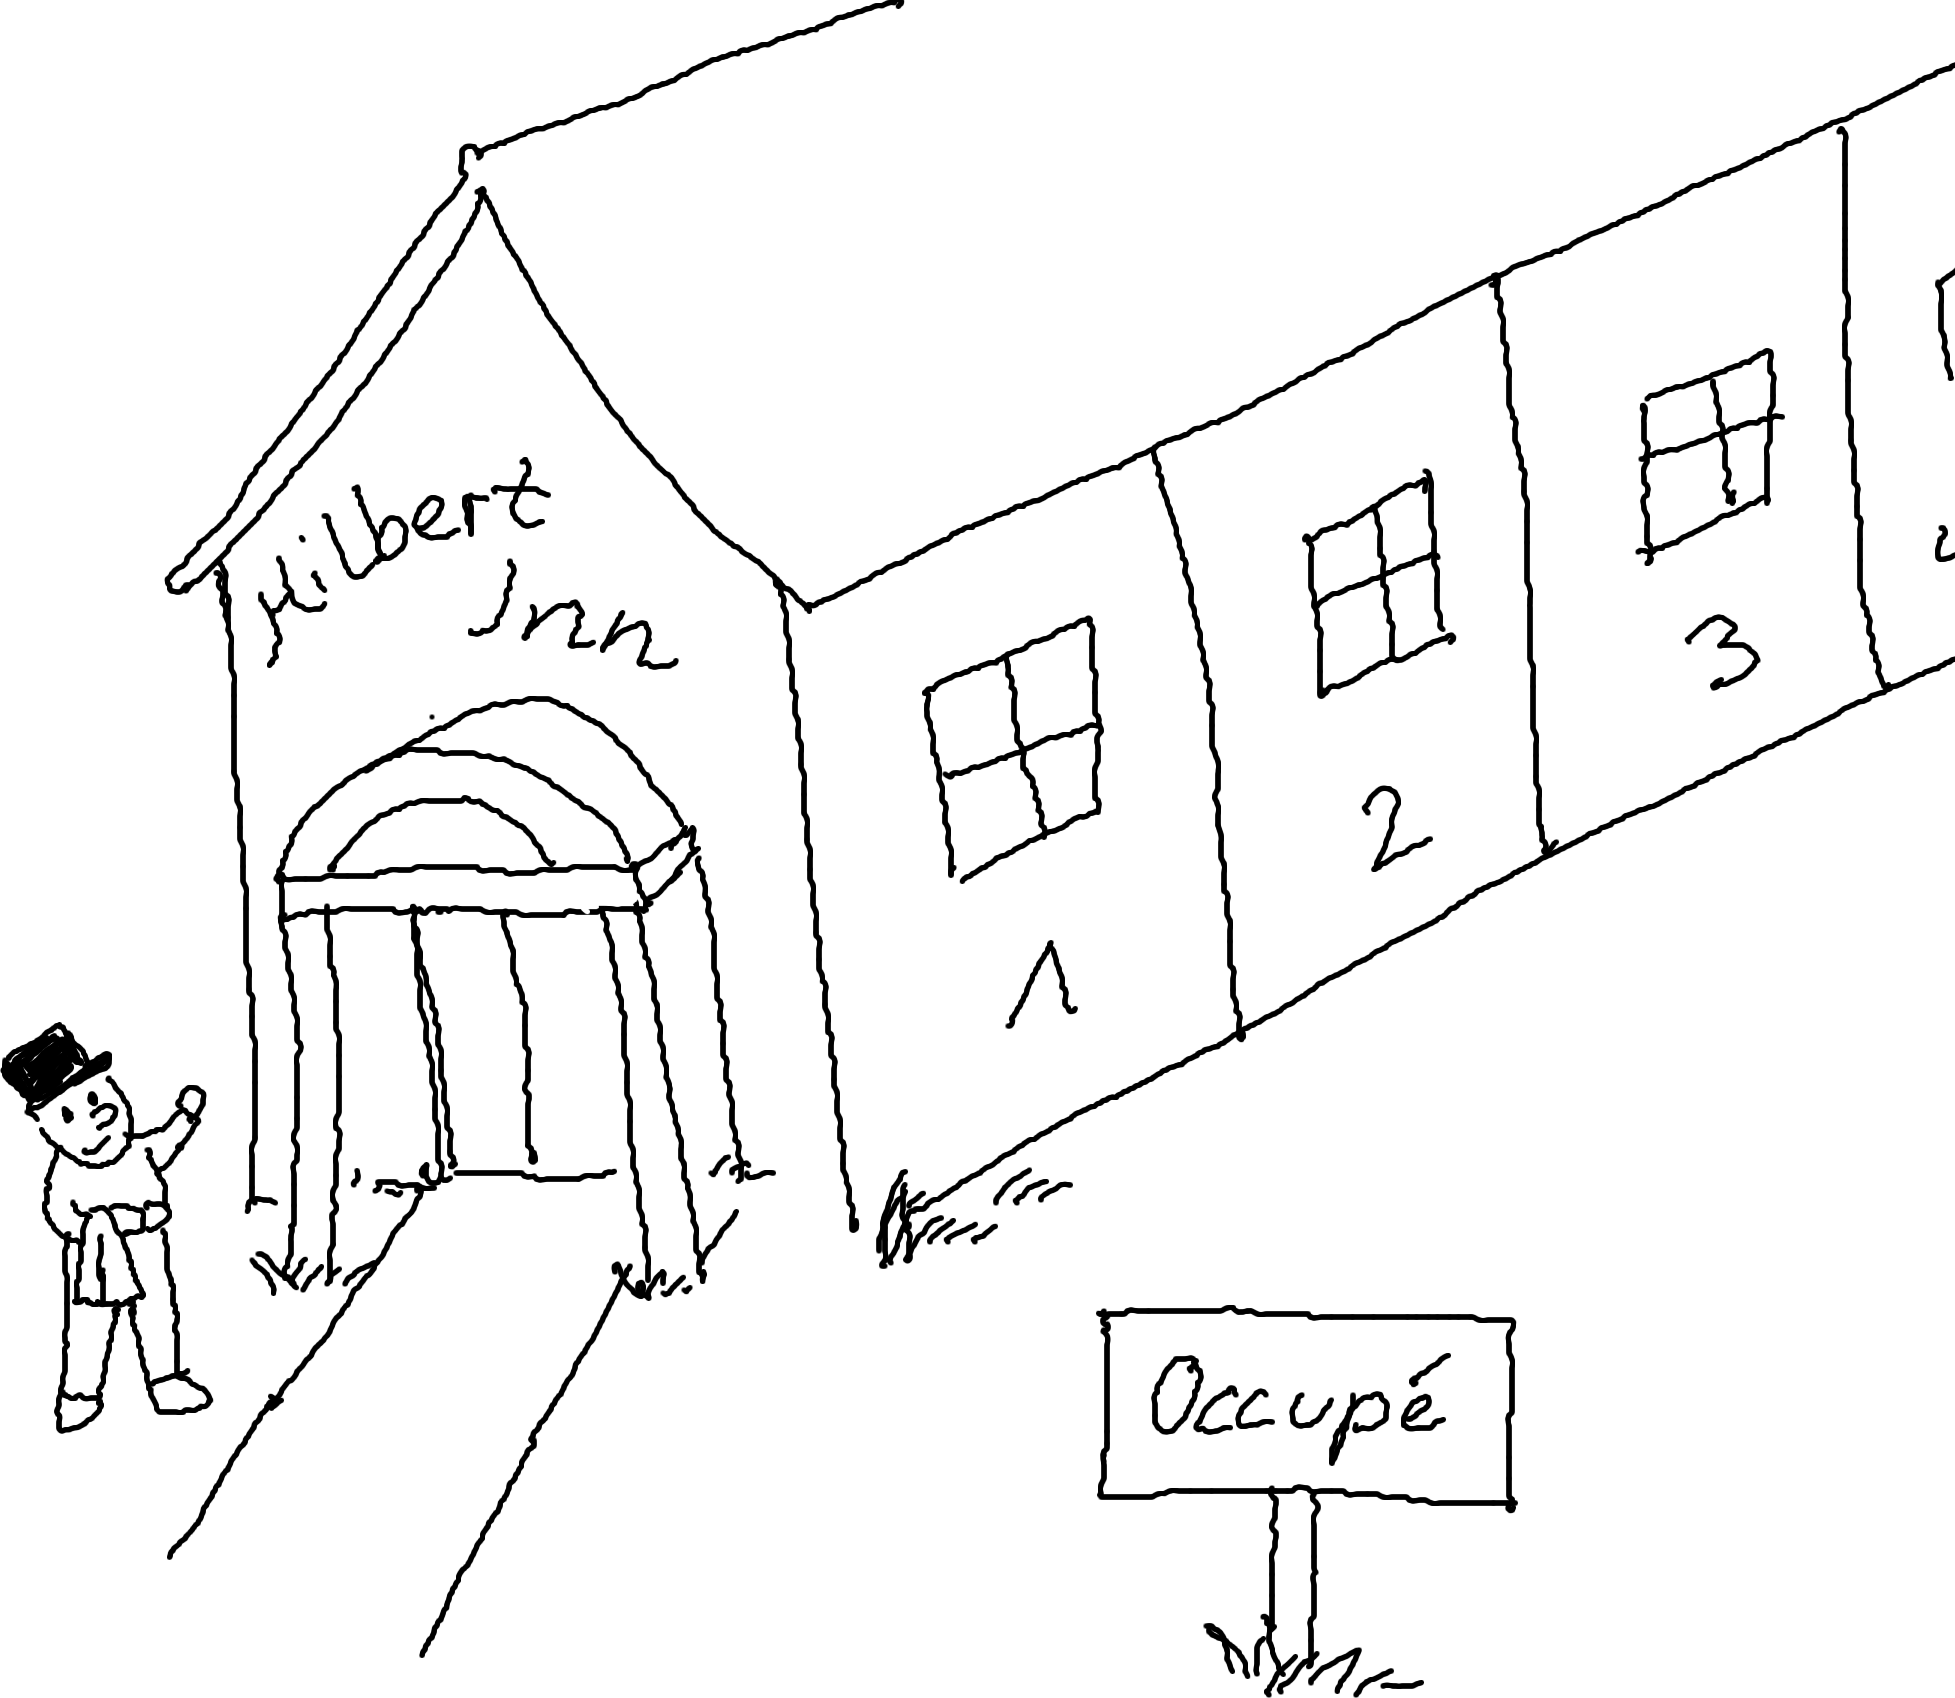 Hilbert
Inn
1
2
3
Occupé